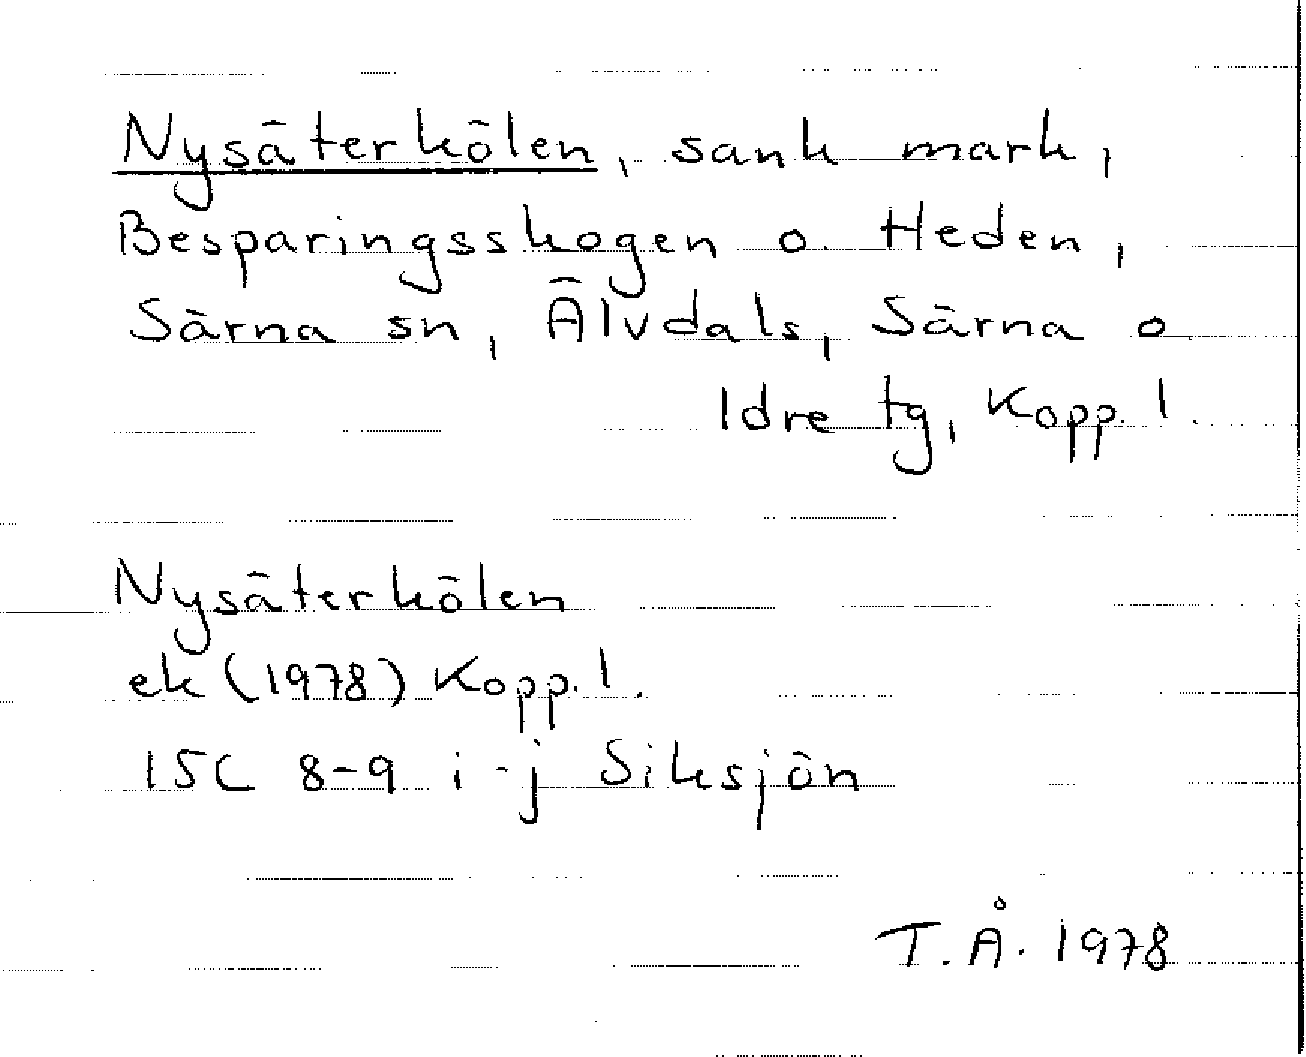 Nysäterkölen, sank mark,
Besparingsskogen o. Heden,
Särna sn, Älvdals, Särna o
Idre tg, Kopp. l.
Nysäterkölen
ek (1978) Kopp. l.
15C 8-9 i-j Siksjön
T.Å. 1978